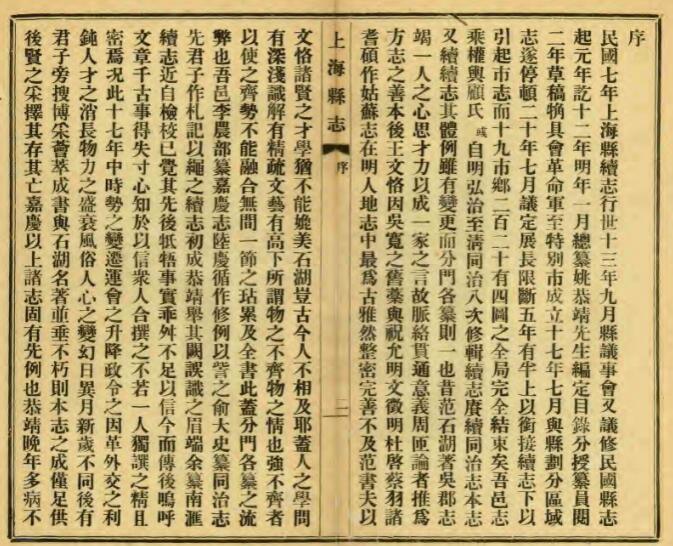 序
民國七年上海縣續志行世十三年九月縣議事會又議修民國縣志
起元年訖十二年明年一月總纂姚恭靖先生編定目錄分授纂員閱
二年草稿犓具會革命軍至特別市成立十七年七月與縣劃分區域
志遂停頓二十年七月議定展長限斷五年有半上以銜接續志下以
引起市志而十九市鄉二百二十有四圖之全局完全結束矣吾邑志
乘權輿顧氏
或
自明弘治至淸同治八次修輯續志賡續同治志本志
又續續志其體例雖有變更而分門各纂則一也昔范石湖著吳郡志
竭一人之心思才力以成一家之言故脈絡貫通意義周匝論者推爲
方志之善本後王文恪因吳寬之舊藁與祝允明文徵明杜啓蔡羽諸
耆碩作姑蘇志在明人地志中最爲古雅然整密完善不及范書夫以
上海縣志
序
二
文恪諸賢之才學猶不能媲美石湖豈古今人不相及耶蓋人之學問
有深淺識解有精疏文藝有高下所謂物之不齊物之情也強不齊者
以使之齊勢不能融合無間一節之玷累及全書此蓋分門各纂之流
弊也吾邑李農部纂嘉慶志陸慶循作修例以訾之俞大史纂同治志
先君子作札記以繩之續志初成恭靖舉其闕誤識之眉端余纂南滙
續志近自檢校已覺其先後牴牾事實乖舛不足以信今而傳後嗚呼
文章千古事得失寸心知於以信衆人合撰之不若一人獨譔之精且
密焉况此十七年中時勢之變遷運會之升降政令之因革外交之利
鈍人才之消長物力之盛衰風俗人心之變幻日異月新歲不同後有
君子旁搜博采薈萃成書與石湖名著並垂不朽則本志之成僅足供
後賢之采擇其存其亡嘉慶以上諸志固有先例也恭靖晚年多病不